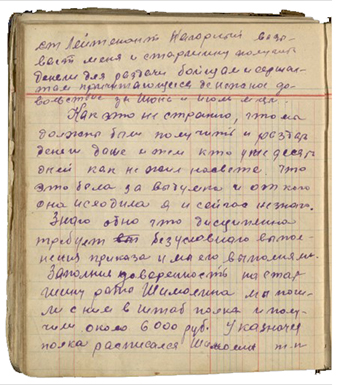 ст Лейтенант Нагорный вызы-
вает меня и старшину получить
деньги для раздачи бойцам и сержан-
там причитающееся денежно до-
вольствие за июнь и июль м-цы.
Как это не странно, что мы
должно были получить и раздать
деньги даже и тем кто уже десять
дней как не стал на свете. Что
это была за выдумка и от кого
она исходила я и сейчас не знаю.
Знаю одно что дисциплина
требует безусловного выпол-
нения приказа и мы его выполнили.
Заполнив доверенность на стар
шину роты Шимолина мы пош-
ли с ним в штаб полка и полу-
чили около 6000 руб. У казначея
полка расписался Шимолин т-п